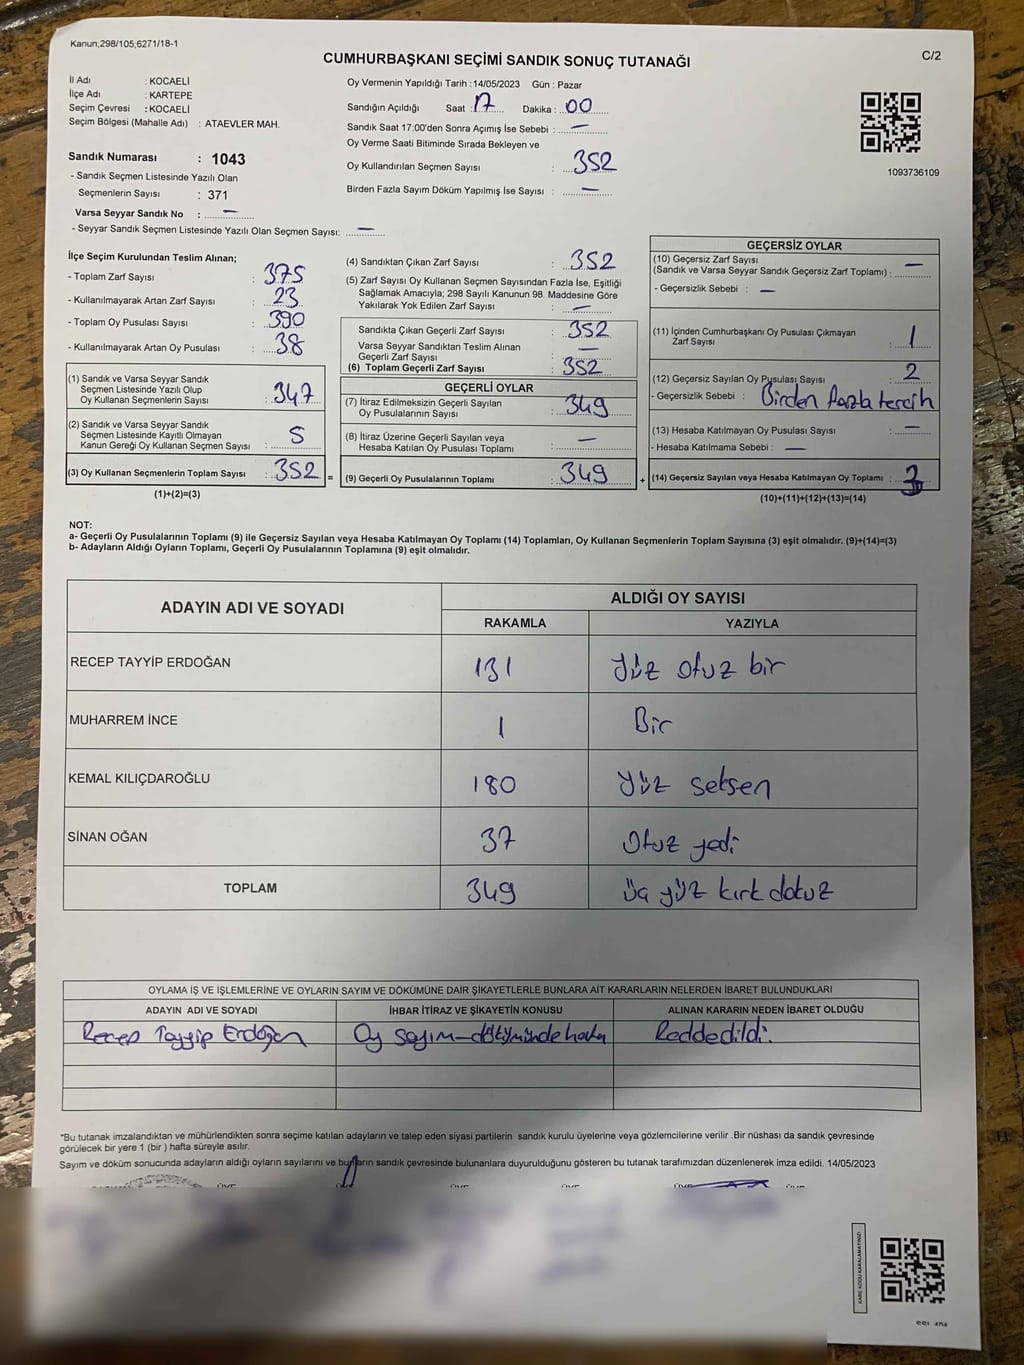 Kanun;298/105;6271/18-1
CUMHURBAŞKANI SEÇİMİ SANDIK SONUÇ TUTANAĞI
C/2
İl Adı : KOCAELİ
İlçe Adı : KARTEPE
Seçim Çevresi : KOCAELİ
Seçim Bölgesi (Mahalle Adı) : ATAEVLER MAH.
Sandık Numarası : 1043
- Sandık Seçmen Listesinde Yazılı Olan
Seçmenlerin Sayısı : 371
Varsa Seyyar Sandık No : —
- Seyyar Sandık Seçmen Listesinde Yazılı Olan Seçmen Sayısı: —
Oy Vermenin Yapıldığı Tarih : 14/05/2023 Gün : Pazar
Sandığın Açıldığı Saat : 17 Dakika : 00
Sandık Saat 17:00'den Sonra Açımış İse Sebebi : —
Oy Verme Saati Bitiminde Sırada Bekleyen ve
Oy Kullandırılan Seçmen Sayısı : 352
Birden Fazla Sayım Döküm Yapılmış İse Sayısı : —
1093736109
İlçe Seçim Kurulundan Teslim Alınan;
- Toplam Zarf Sayısı : 375
- Kullanılmayarak Artan Zarf Sayısı : 23
- Toplam Oy Pusulası Sayısı : 390
- Kullanılmayarak Artan Oy Pusulası : 38
(1) Sandık ve Varsa Seyyar Sandık
Seçmen Listesinde Yazılı Olup
Oy Kullanan Seçmenlerin Sayısı : 347
(2) Sandık ve Varsa Seyyar Sandık
Seçmen Listesinde Kayıtlı Olmayan
Kanun Gereği Oy Kullanan Seçmen Sayısı : 5
(3) Oy Kullanan Seçmenlerin Toplam Sayısı : 352 =
(1)+(2)=(3)
(4) Sandıktan Çıkan Zarf Sayısı : 352
(5) Zarf Sayısı Oy Kullanan Seçmen Sayısından Fazla İse, Eşitliği
Sağlamak Amacıyla; 298 Sayılı Kanunun 98. Maddesine Göre
Yakılarak Yok Edilen Zarf Sayısı : —
Sandıkta Çıkan Geçerli Zarf Sayısı : 352
Varsa Seyyar Sandıktan Teslim Alınan
Geçerli Zarf Sayısı : —
(6) Toplam Geçerli Zarf Sayısı : 352
GEÇERLİ OYLAR
(7) İtiraz Edilmeksizin Geçerli Sayılan
Oy Pusulalarının Sayısı : 349
(8) İtiraz Üzerine Geçerli Sayılan veya
Hesaba Katılan Oy Pusulası Toplamı : —
(9) Geçerli Oy Pusulalarının Toplamı : 349 +
GEÇERSİZ OYLAR
(10) Geçersiz Zarf Sayısı
(Sandık ve Varsa Seyyar Sandık Geçersiz Zarf Toplamı) : —
- Geçersizlik Sebebi : —
(11) İçinden Cumhurbaşkanı Oy Pusulası Çıkmayan
Zarf Sayısı : 1
(12) Geçersiz Sayılan Oy Pusulası Sayısı : 2
- Geçersizlik Sebebi : Birden fazla tercih
(13) Hesaba Katılmayan Oy Pusulası Sayısı : —
- Hesaba Katılmama Sebebi : —
(14) Geçersiz Sayılan veya Hesaba Katılmayan Oy Toplamı : 3
(10)+(11)+(12)+(13)=(14)
NOT:
a- Geçerli Oy Pusulalarının Toplamı (9) ile Geçersiz Sayılan veya Hesaba Katılmayan Oy Toplamı (14) Toplamları, Oy Kullanan Seçmenlerin Toplam Sayısına (3) eşit olmalıdır. (9)+(14)=(3)
b- Adayların Aldığı Oyların Toplamı, Geçerli Oy Pusulalarının Toplamına (9) eşit olmalıdır.
ADAYIN ADI VE SOYADI
ALDIĞI OY SAYISI
RAKAMLA YAZIYLA
RECEP TAYYİP ERDOĞAN 131 Yüz otuz bir
MUHARREM İNCE 1 Bir
KEMAL KILIÇDAROĞLU 180 Yüz seksen
SİNAN OĞAN 37 Otuz yedi
TOPLAM 349 üç yüz kırk dokuz
OYLAMA İŞ VE İŞLEMLERİNE VE OYLARIN SAYIM VE DÖKÜMÜNE DAİR ŞİKAYETLERLE BUNLARA AİT KARARLARIN NELERDEN İBARET BULUNDUKLARI
ADAYIN ADI VE SOYADI İHBAR İTİRAZ VE ŞİKAYETİN KONUSU ALINAN KARARIN NEDEN İBARET OLDUĞU
Recep Tayyip Erdoğan Oy sayım-dökümünde hata Reddedildi.
*Bu tutanak imzalandıktan ve mühürlendikten sonra seçime katılan adayların ve talep eden siyasi partilerin sandık kurulu üyelerine veya gözlemcilerine verilir .Bir nüshası da sandık çevresinde
görülecek bir yere 1 (bir ) hafta süreyle asılır.
Sayım ve döküm sonucunda adayların aldığı oyların sayılarını ve bunların sandık çevresinde bulunanlara duyurulduğunu gösteren bu tutanak tarafımızdan düzenlenerek imza edildi. 14/05/2023
KARE KODU KARALAMAYINIZ!